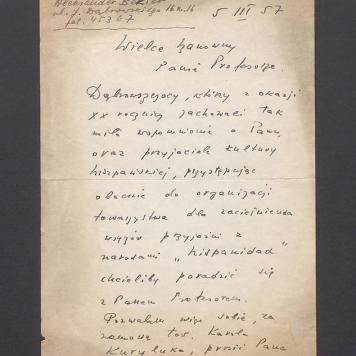 Aleksander Bekier
ul. J. Dąbrowskiego 16 m. 16
tel. 45367
5 III 57
Wielce szanowny
Panie Profesorze.
Dąbrowszczacy, którzy z okazji
XX rocznicy zachowali tak
miłe wspomnienie o Panu,
oraz przyjaciele kultury
hiszpańskiej, przystępując
obecnie do organizacji
towarzystwa dla zacieśnienia
więzów przyjaźni z
narodami "hispanidad"
chcieliby poradzić się
z Panem Profesorem.
Pozwalam więc sobie, za
namową tow. Karola
Kuryluka, prosić Pana